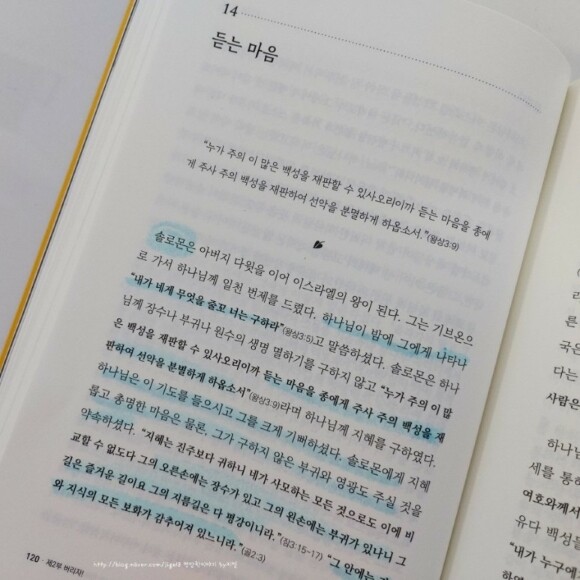 14
듣는 마음
“누가 주의 이 많은 백성을 재판할 수 있사오리이까 듣는 마음을 종에
게 주사 주의 백성을 재판하여 선악을 분별하게 하옵소서.”(왕상3:9)
솔로몬은 아버지 다윗을 이어 이스라엘의 왕이 된다. 그는 기브온으
로 가서 하나님께 일천 번제를 드렸다. 하나님이 밤에 그에게 나타나
“내가 네게 무엇을 줄고 너는 구하라”(왕상3:5)고 말씀하셨다. 솔로몬은 하나
님께 장수나 부귀나 원수의 생명 멸하기를 구하지 않고 “누가 주의 이 많
은 백성을 재판할 수 있사오리이까 듣는 마음을 종에게 주사 주의 백성을 재
판하여 선악을 분별하게 하옵소서”(왕상3:9)라며 하나님께 지혜를 구하였다.
하나님은 이 기도를 들으시고 그를 크게 기뻐하셨다. 솔로몬에게 지혜
롭고 총명한 마음은 물론, 그가 구하지 않은 부귀와 영광도 주실 것을
약속하셨다. “지혜는 진주보다 귀하니 네가 사모하는 모든 것으로도 이에 비
교할 수 없도다 그의 오른손에는 장수가 있고 그의 왼손에는 부귀가 있나니 그
길은 즐거운 길이요 그의 지름길은 다 평강이니라.”(잠3:15-17) “그 안에는
와 지식의 모든 보화가 감추어져 있느니라.”(골2:3)
120 제2부 버리자!
국은
다는
사람은
하나님
세를 통해
여호와께서
유다 백성
“내가
누구에